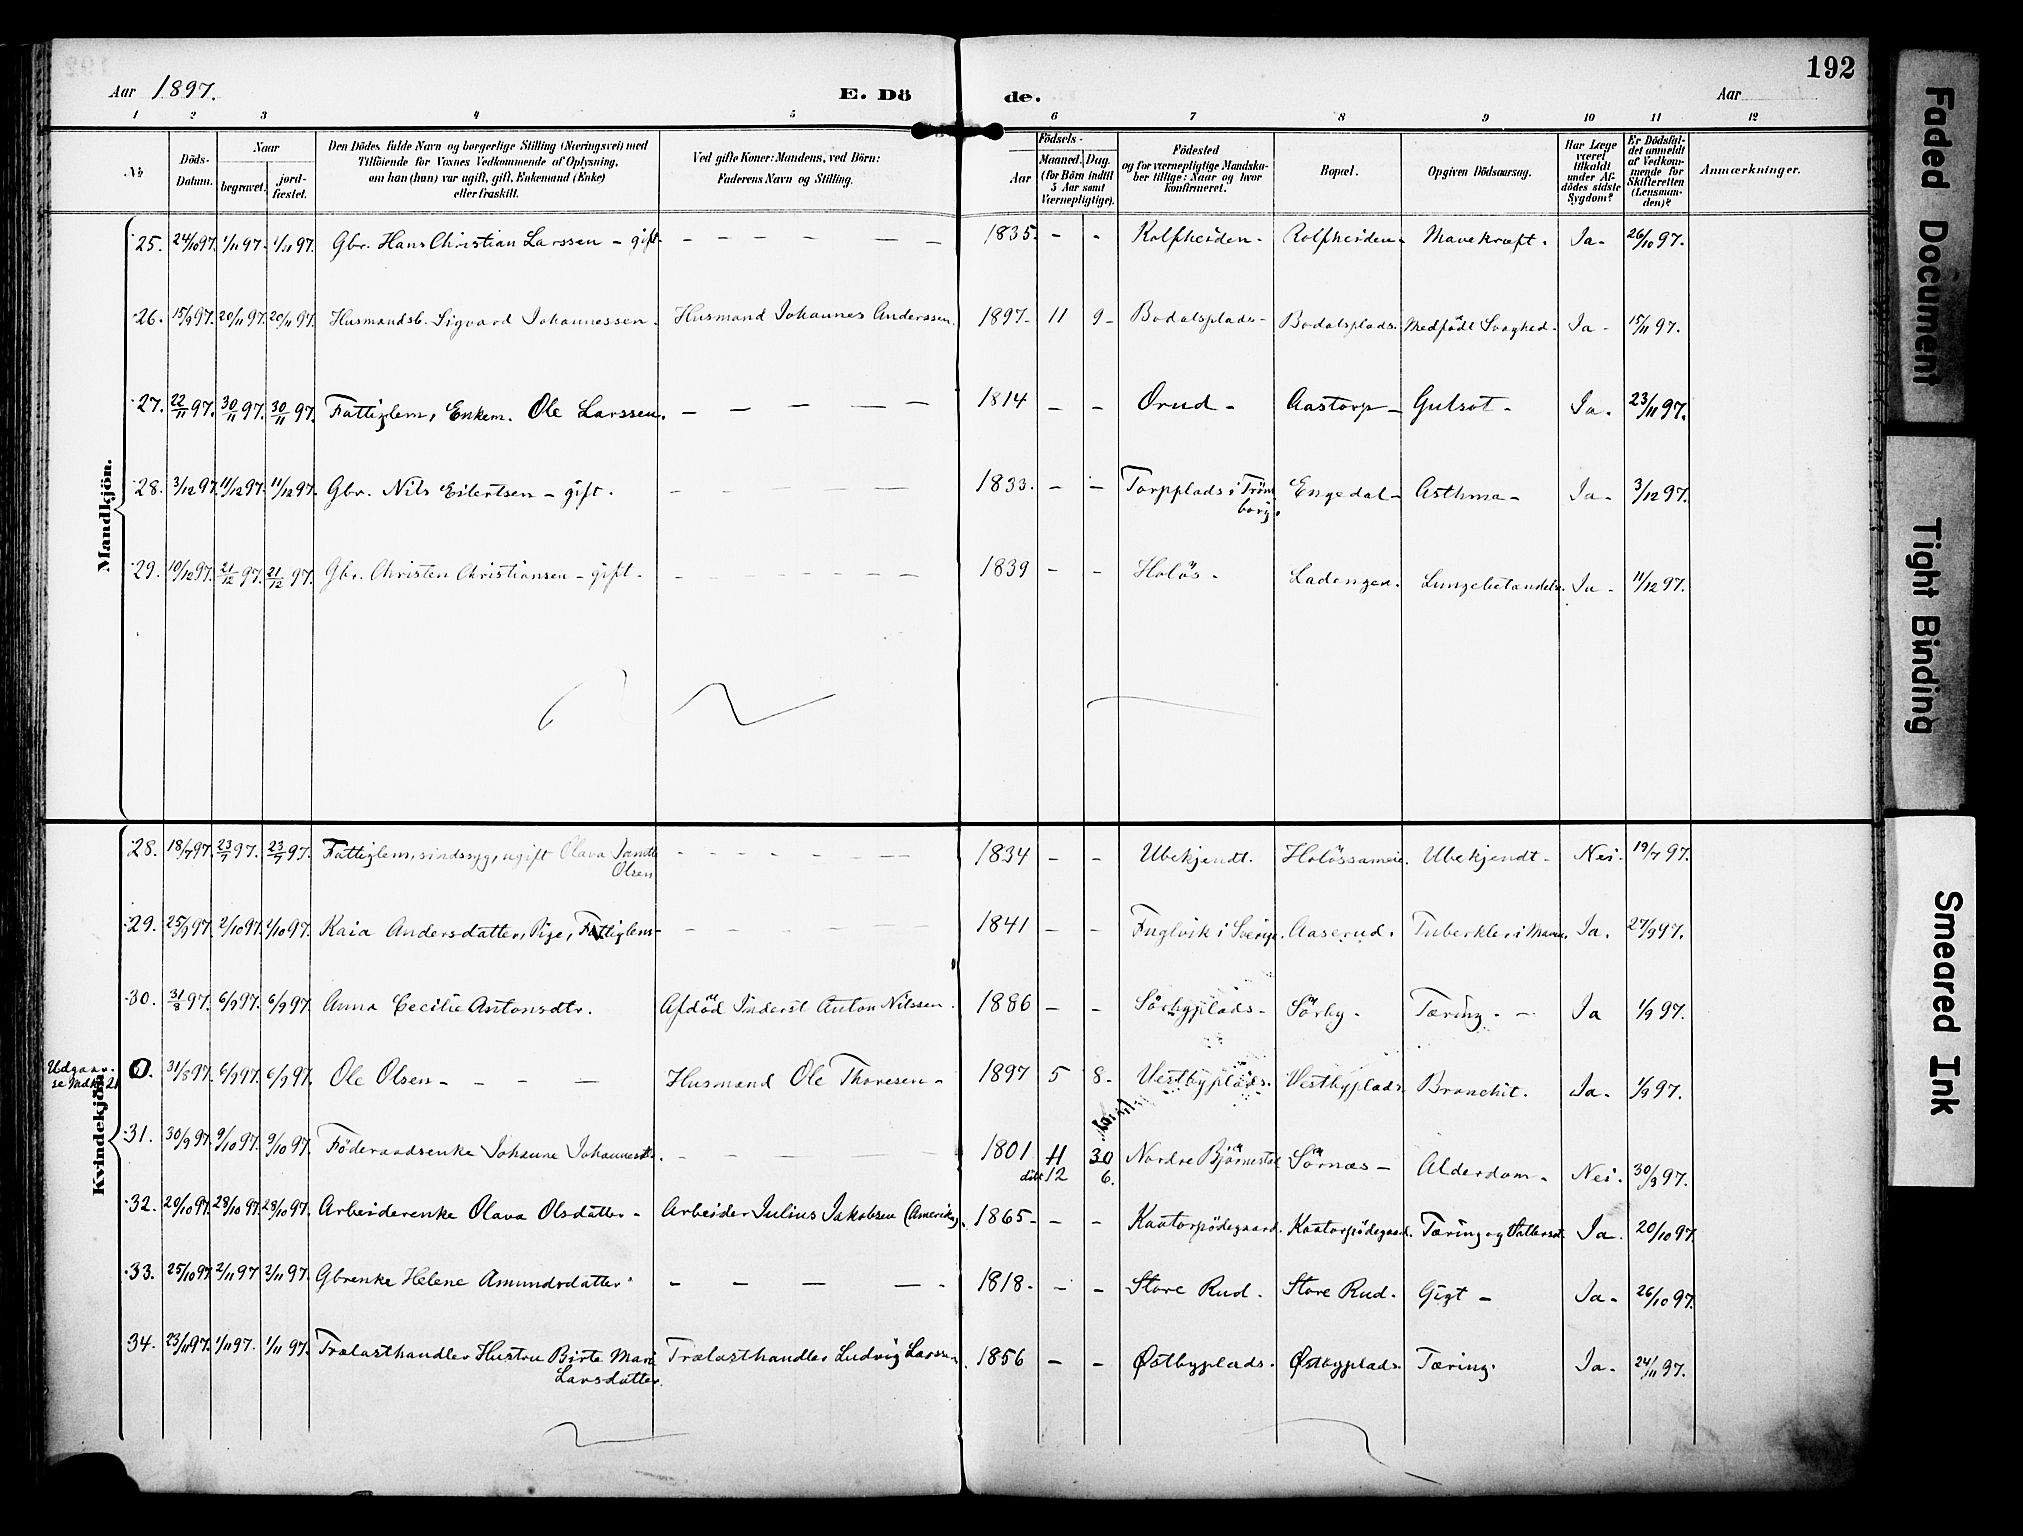 192
Aar 1897. E. Dö de. Aar
1 2 3 4 5 6 7 8 9 10 11 12
№
Döds-Datum.
Naar
begravet.
jord-fæstet.
Den Dödes fulde Navn og borgerlige Stilling (Næringsvei) med
Tilföiende for Voxnes Vedkommende af Oplysning,
om han (hun) var ugift, gift, Enkemand (Enke)
eller fraskilt.
Ved gifte Koner: Mandens, ved Börn:
Faderens Navn og Stilling.
Födsels-
Aar
Maaned. Dag.
(for Börn indtil
5 Aar samt
Værnepligtige).
Födested
og for værnepligtige Mandska-
ber tillige: Naar og hvor
konfirmeret.
Bopæl.
Opgiven Dödsaarsag.
Har Læge
været
tilkaldt
under Af-
dödes sidste
Sygdom?
Er Dödsfal-
det anmeldt
af Vedkom-
mende for
Skifteretten
(Lensman-
den)?
Anmærkninger.
Mandkjön.
25. 24/10 97. 1/11 97. 1/11 97. Gbr. Hans Christian Larssen - gift - - - - - - 1835. - - Rolfheiden - Rolfheiden - Mavekræft. Ja - 26/10 97.
26. 15/9 97. 20/11 97. 20/11 97. Husmandsb. Sigvard Johannessen. Husmand Johannes Anderssen. 1897. 11 9 - Bodalsplads - Bodalsplads. Medfödt Svaghed. Ja - 15/11 97.
27. 22/11 97. 30/11 97. 30/11 97. Fattiglem, Enkem. Ole Larssen. - - - - - 1814 - - Orud - Aastorp - Gulsot - Ja. 23/11 97.
28. 3/12 97. 11/12 97. 11/12 97. Gbr. Nils Eilertsen - gift. - - - - - - 1833. - - Torpplads i Tröm
borg. Engedal - Asthma - Ja - 3/12 97.
29. 10/12 97. 21/12 97. 21/12 97. Gbr. Christen Christiansen - gift - - - - - - 1839 - - Holös - Ladengen. Lungebetændelse. Ja - 11/12 97.
Kvindekjön.
28. 18/7 97. 23/7 97. 23/7 97. Fattiglem, sindssyg, ugift Olava
Olsen - - - - - - 1834 - - Ubekjendt. Holössameie. Ubekjendt - Nei. 19/7 97.
29. 25/9 97. 2/10 97. 2/10 97. Kaia Andersdatter, Pige, Fattiglem - - - - - - 1841 - - Fuglvik i Sverige. Aaserud. Tuberkler i Maven. Ja. 27/9 97.
30. 31/8 97. 6/9 97. 6/9 97. Anna Cecilie Antonsdtr. Afdöd Inderst Anton Nilssen. 1886 - - Sörbyplads - Sörby - Tæring. - Ja 1/9 97.
Udgaar.
se Mdk. 21
0. 31/8 97. 6/9 97. 6/9 97. Ole Olsen - - - - Husmand Ole Thoresen - 1897 5 8 - Vestbyplads. Vestbyplads. Bronchit. Ja. 1/9 97.
31. 30/9 97. 9/10 97. 9/10 97. Föderaadsenke Johanne Johannesdtr. - - - - 1801 11 30 Nordre Björnestad Sörnæs - Alderdom. Nei. 30/9 97.
döbt 12 6.
32. 20/10 97. 28/10 97. 28/10 97. Arbeiderenke Olava Olsdatter - Arbeider Julius Jakobsen (Amerika). 1865 - - - Kaatorpödegaard. Kaatorpödegaard. Tæring og Vattersot. Ja. 20/10 97.
33. 25/10 97. 2/11 97 2/11 97. Gbrenke Helene Amundsdatter. - - - - - 1818 - - - Store Rud. Store Rud. Gigt - Ja - 26/10 97.
34. 23/11 97. 1/11 97. 1/11 97. Trælasthandler Hustru Birte Mari
Larsdatter. Trælasthandler Ludvig Larssen. 1856 - - Østbyplads. Østbyplads. Tæring. Ja - 24/11 97.
Faded Document
Tight Binding
Smeared Ink